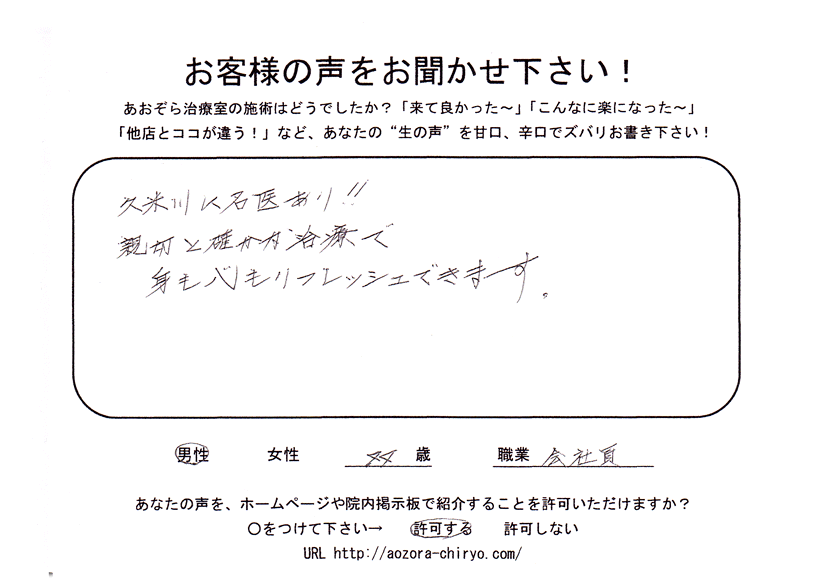 お客様の声をお聞かせ下さい！
あおぞら治療室の施術はどうでしたか？「来て良かった～」「こんなに楽になった～」
「他店とココが違う！」など、あなたの“生の声”を甘口、辛口でズバリお書き下さい！
久米川に名医あり!!
親切と確かな治療で
身も心もリフレッシュできます。
男性 女性 歳 職業 会社員
あなたの声を、ホームページや院内掲示板で紹介することを許可いただけますか？
〇をつけて下さい→ 許可する 許可しない
URL http://aozora-chiryo.com/